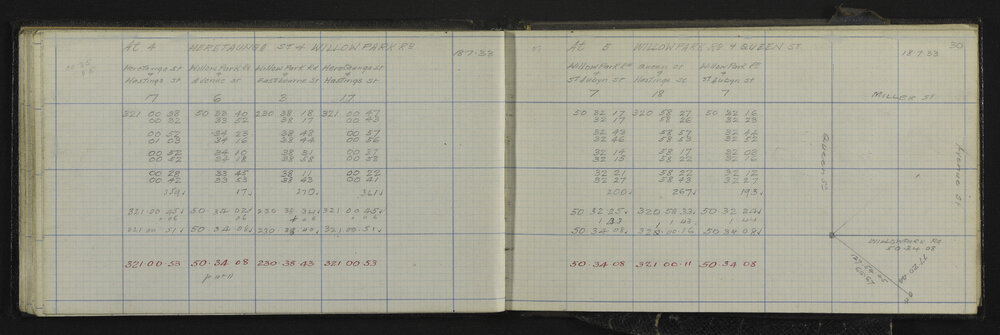 At 4 HERETAUNGA ST & WILLOW PARK RD
18.7.33
Heretaunga St Willow Park Rd Willow Park Rd Heretaunga St
& & & &
Hastings St Avenue St Eastbourne St Hastings St
17 6 2 17
321 00 38 50 33 40 230 38 18 321 00 47
00 32 33 52 38 17 00 43
00 57 34 23 38 48 00 57
01 03 34 16 38 44 00 56
00 52 34 10 38 51 00 57
00 52 34 18 38 58 00 58
00 28 33 45 38 11 00 22
00 42 33 53 38 43 00 41
359 17 270 321
321 00 45 50 34 02 230 38 34 321 00 45
+ 06 06 + 06 + 06
321 00 51 50 34 08 230 38 40 321 00 51
321-00-53 50-34-08 230-38-43 321-00-53
At 5 WILLOWPARK RD & QUEEN ST.
18.7.33
30
Willow Park Rd Queen St Willow Park Rd
& & &
St Aubyn St Hastings St St Aubyn St
7 18 7
50 32 17 320 58 27 50 32 16
32 17 58 26 32 23
32 43 58 57 32 44
32 46 58 53 32 52
32 14 58 17 32 03
32 15 58 22 32 16
32 21 58 22 32 12
32 27 58 43 32 27
200 267 193
50 32 25 320 58 33 50 32 24
1 33 1 43 1 44
50 34 08 321 00 16 50 34 08
50-34-08 321-00-11 50-34-08
MILLER ST
Queen St
Avenue St
WILLOWPARK RD
50-34-08